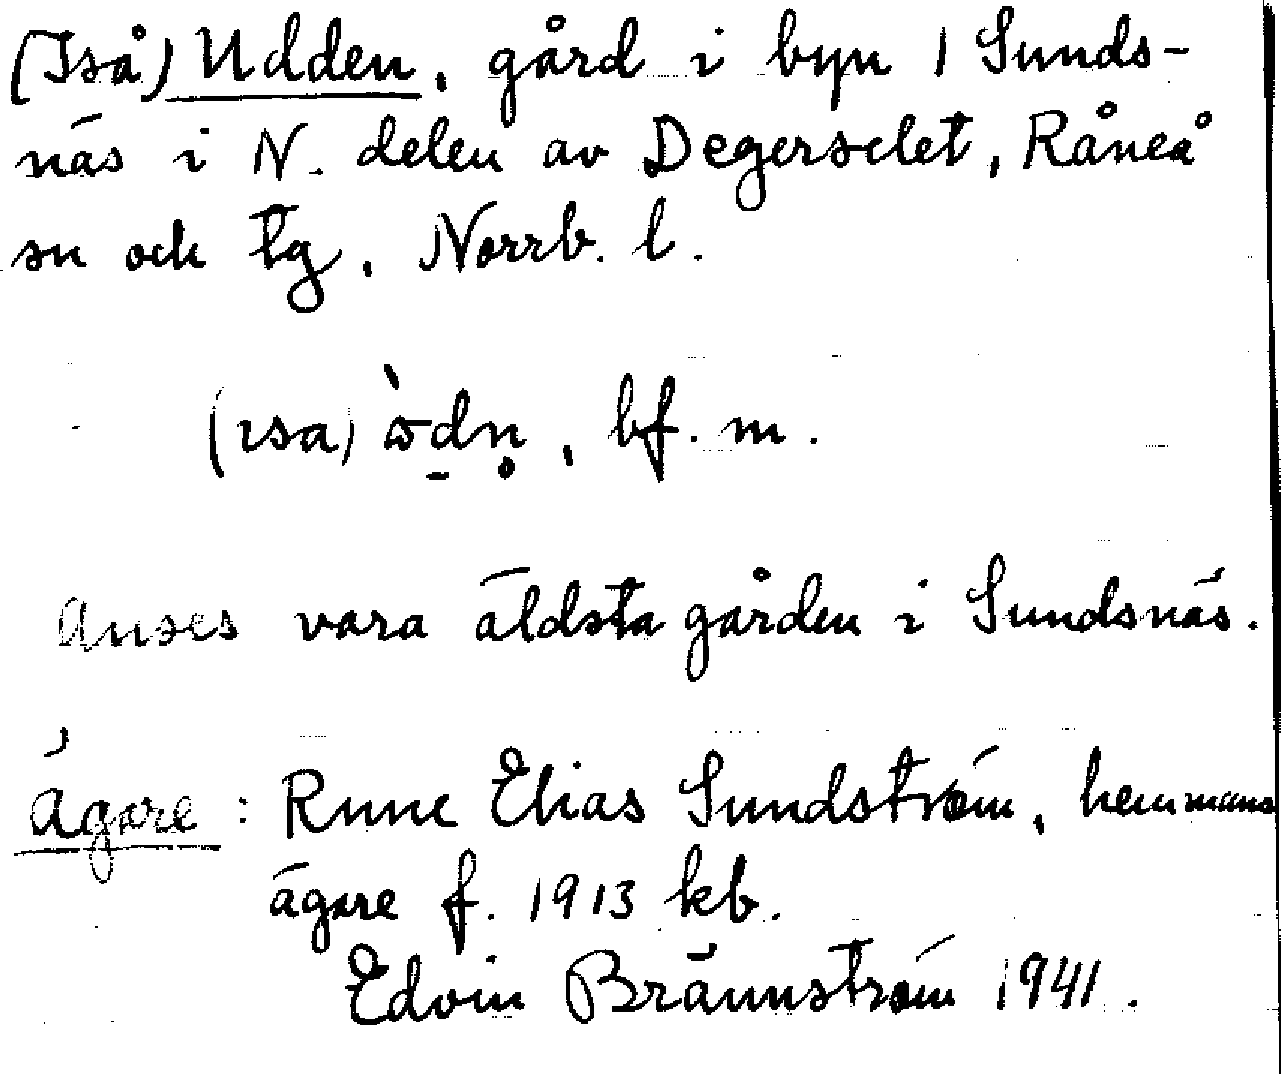 (Iså) Udden, gård i byn 1 Sunds-
näs i N. delen av Degerselet, Råneå
sn och tg, Norrb. l.
(ısa) ɷ̀dn̥, bf. m.
Anses vara äldsta gården i Sundsnäs.
Ägare: Rune Elias Sundström, hemmans
ägare f. 1913 kb.
Edvin Brännström 1941.